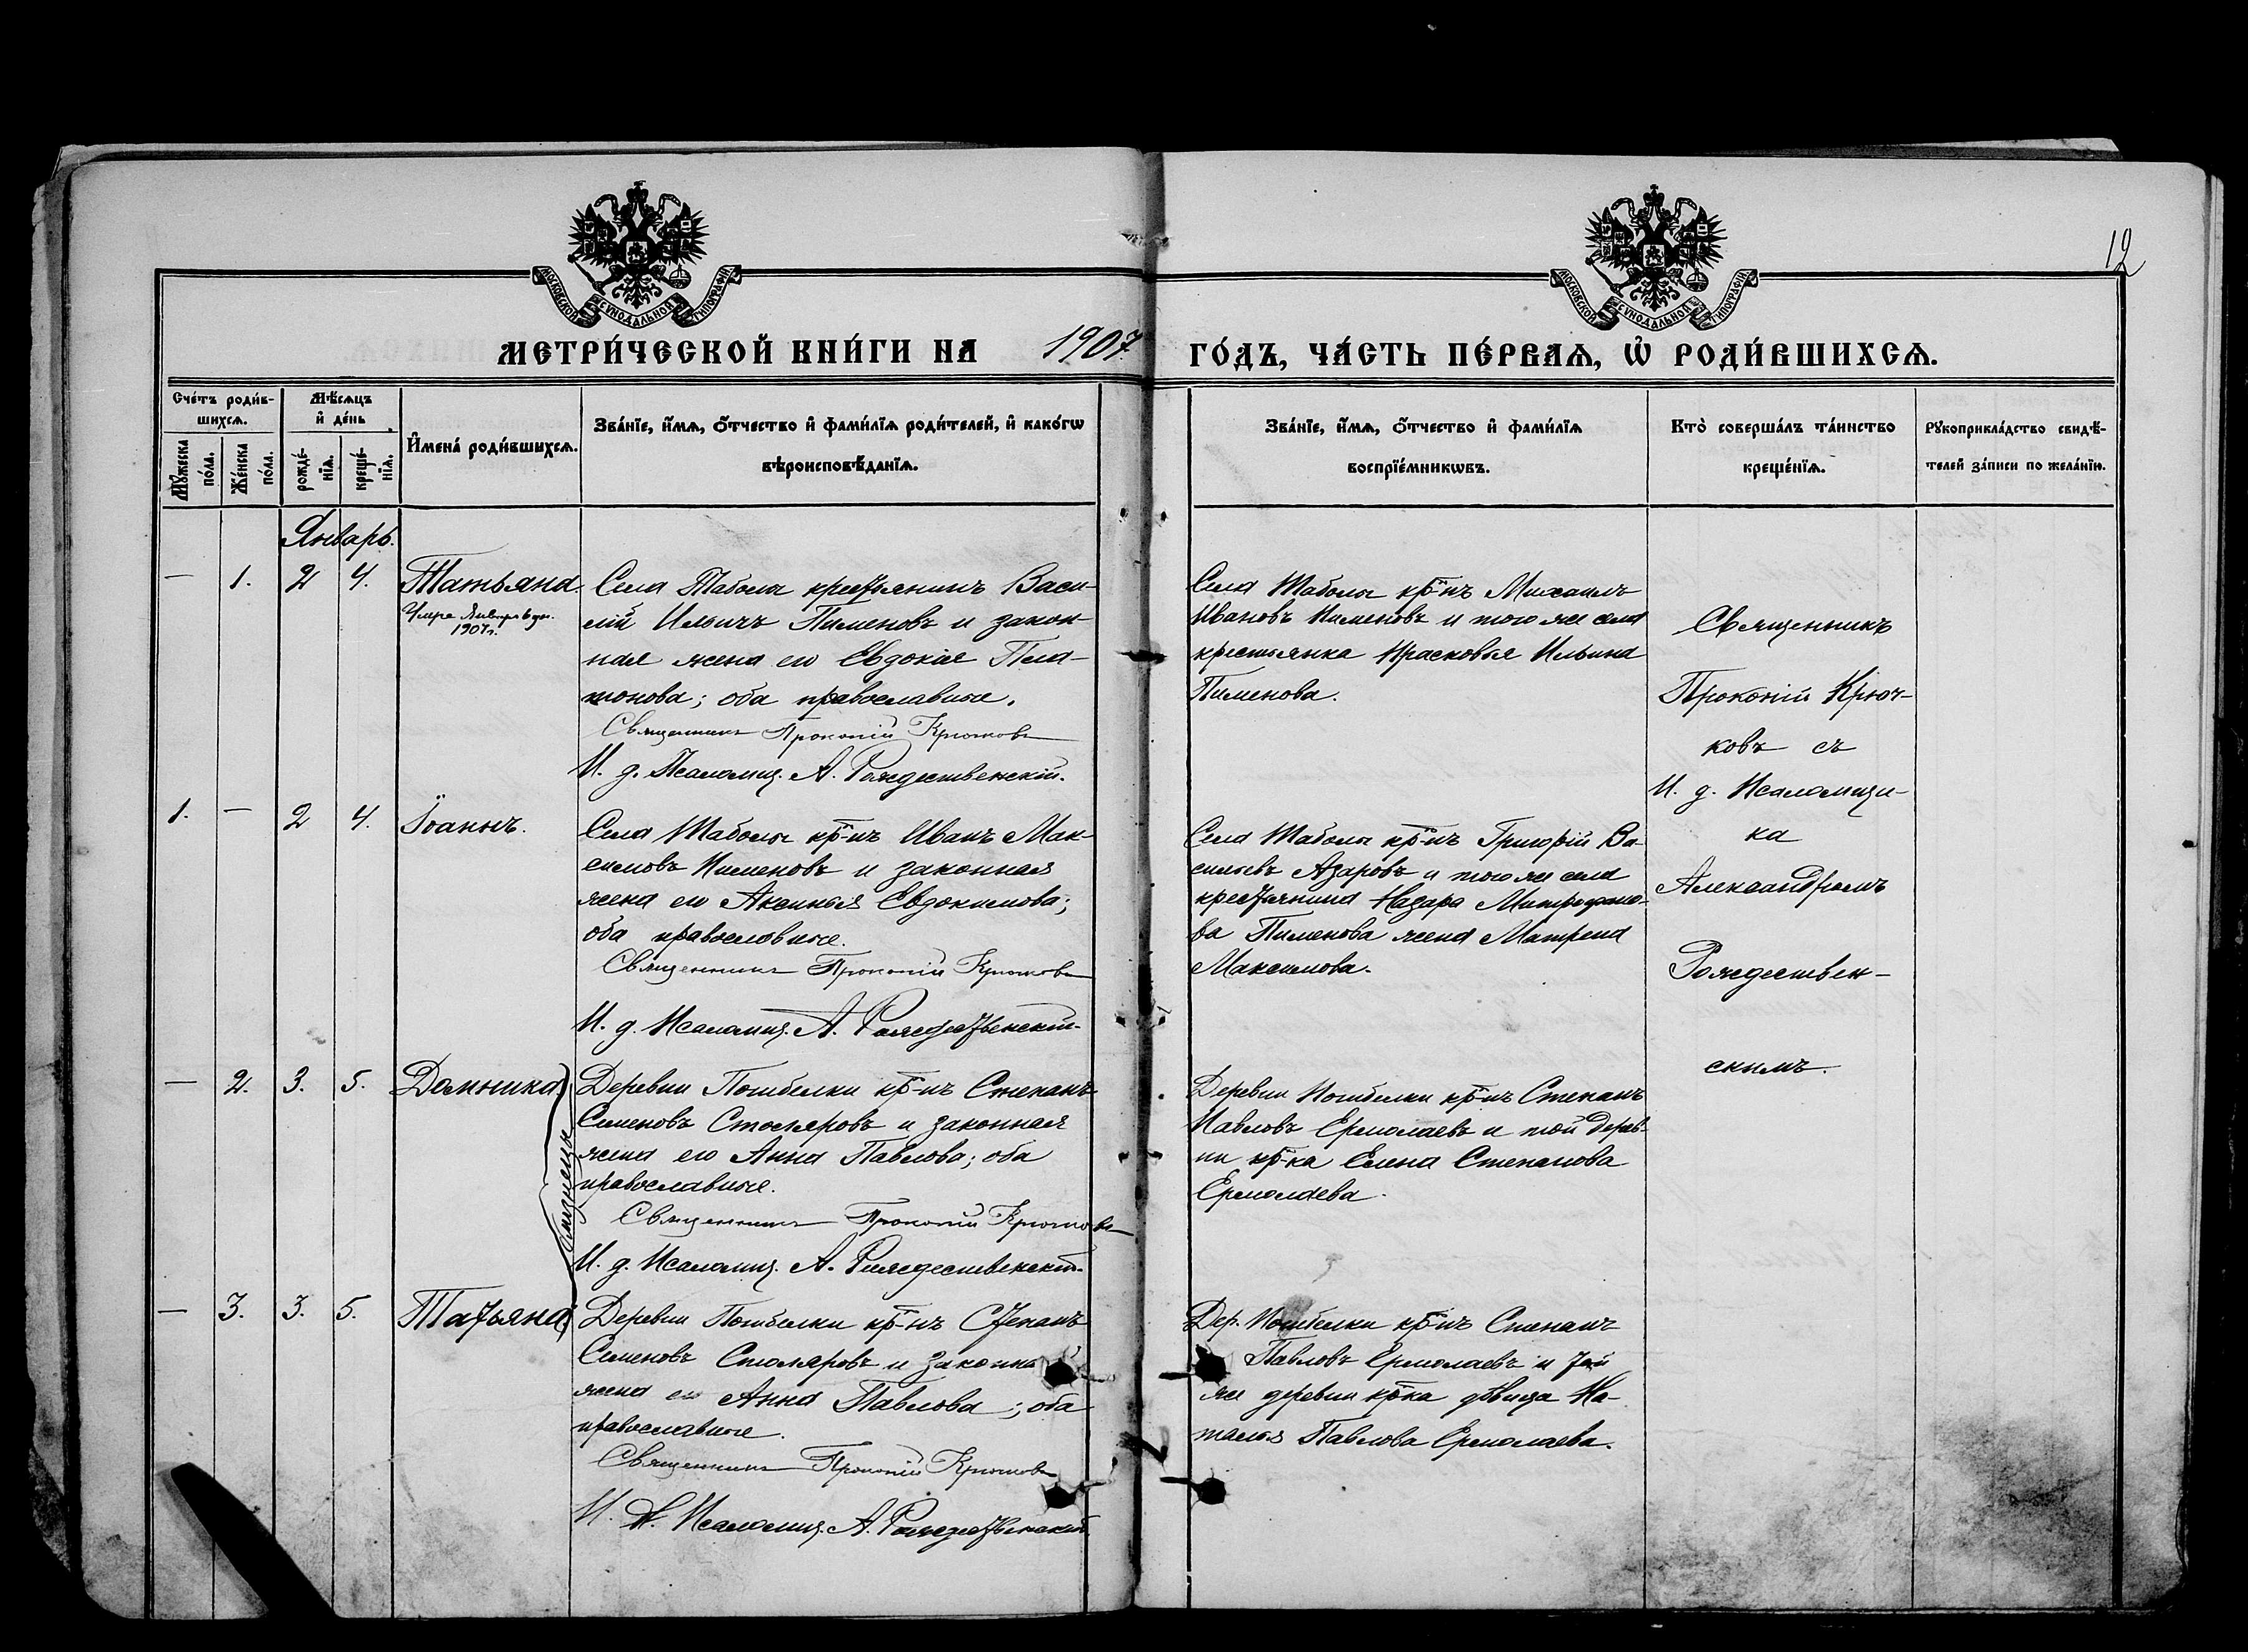 МОСКОВСКОЙ СѴНОДАЛЬНОЙ ТИПОГРАФІИ
МОСКОВСКОЙ СѴНОДАЛЬНОЙ ТИПОГРАФІИ
12
МЕТРИ́ЧЕСКОЙ КНИ́ГИ НА 1907 ГО́ДЪ, ЧА́СТЬ ПЕ́РВАѦ, Ѡ҆ РОДИ́ВШИХСѦ.
Сче́тъ роди́в-
шихсѧ.
Мꙋ́жеска
по́ла.
Же́нска
по́ла.
Мѣ́сѧцъ
и҆ де́нь
рожде́-
нїѧ.
креще́-
нїѧ.
И҆мена̀ роди́вшихсѧ.
Зва́нїе, и҆́мѧ, ѻ҆́тчество и҆ фами́лїѧ роди́телей, и҆ како́гѡ
вѣроисповѣ́данїѧ.
Зва́нїе, и҆́мѧ, ѻ҆́тчество и҆ фами́лїѧ
воспрїе́мникѡвъ.
Кто̀ соверша́лъ та́инство
креще́нїѧ.
Рꙋкоприкла́дство свидѣ́-
телей за́писи по жела́нїю.
Январь.
— 1. 2 4. Татьяна.
Умре Январь дн.
1907 г.
Села Табола крестьянинъ Васи-
лій Ильичъ Пименовъ и закон-
ная жена его Евдокія Пла-
тонова; оба православные.
Священникъ Прокопій Крючковъ
И. д. Псаломщ. А. Рождественскій.
Села Таболы кр-нъ Михаилъ
Ивановъ Пименовъ и того же села
крестьянка Прасковья Ильина
Пименова.
Священникъ
Прокопій Крюч-
ковъ съ
И. д. Псаломщи-
ка
Александромъ
Рождествен-
скимъ.
1. — 2 4. Іоаннъ.
Села Таболы кр-нъ Иванъ Мак-
симовъ Пименовъ и законная
жена его Аксинья Евдокимова;
оба православные.
Священникъ Прокопій Крючковъ
И. д. Псаломщ. А. Рождественскій.
Села Таболы кр-нъ Григорій Ва-
сильевъ Азаровъ и того же села
крестьянина Назара Митрофано-
ва Пименова жена Матрена
Максимова.
— 2. 3. 5. Домника
Близнецы
Деревни Погибелки кр-нъ Степанъ
Семеновъ Столяровъ и законная
жена его Анна Павлова; оба
православные.
Священникъ Прокопій Крючковъ
И. д. Псаломщ. А. Рождественскій.
Деревни Погибелки кр-нъ Степанъ
Павловъ Ермолаевъ и той дерев-
ни кр-ка Елена Степанова
Ермолаева.
— 3. 3. 5. Татьяна
Деревни Погибелки кр-нъ Степанъ
Семеновъ Столяровъ и законна
жена его Анна Павлова; оба
православные.
Священникъ Прокопій Крючковъ
И. д. Псаломщ. А. Рождественскій.
Дер. Погибелки кр-нъ Степанъ
Павловъ Ермолаевъ и той
же деревни кр-ка дѣвица На-
талья Павлова Ермолаева.